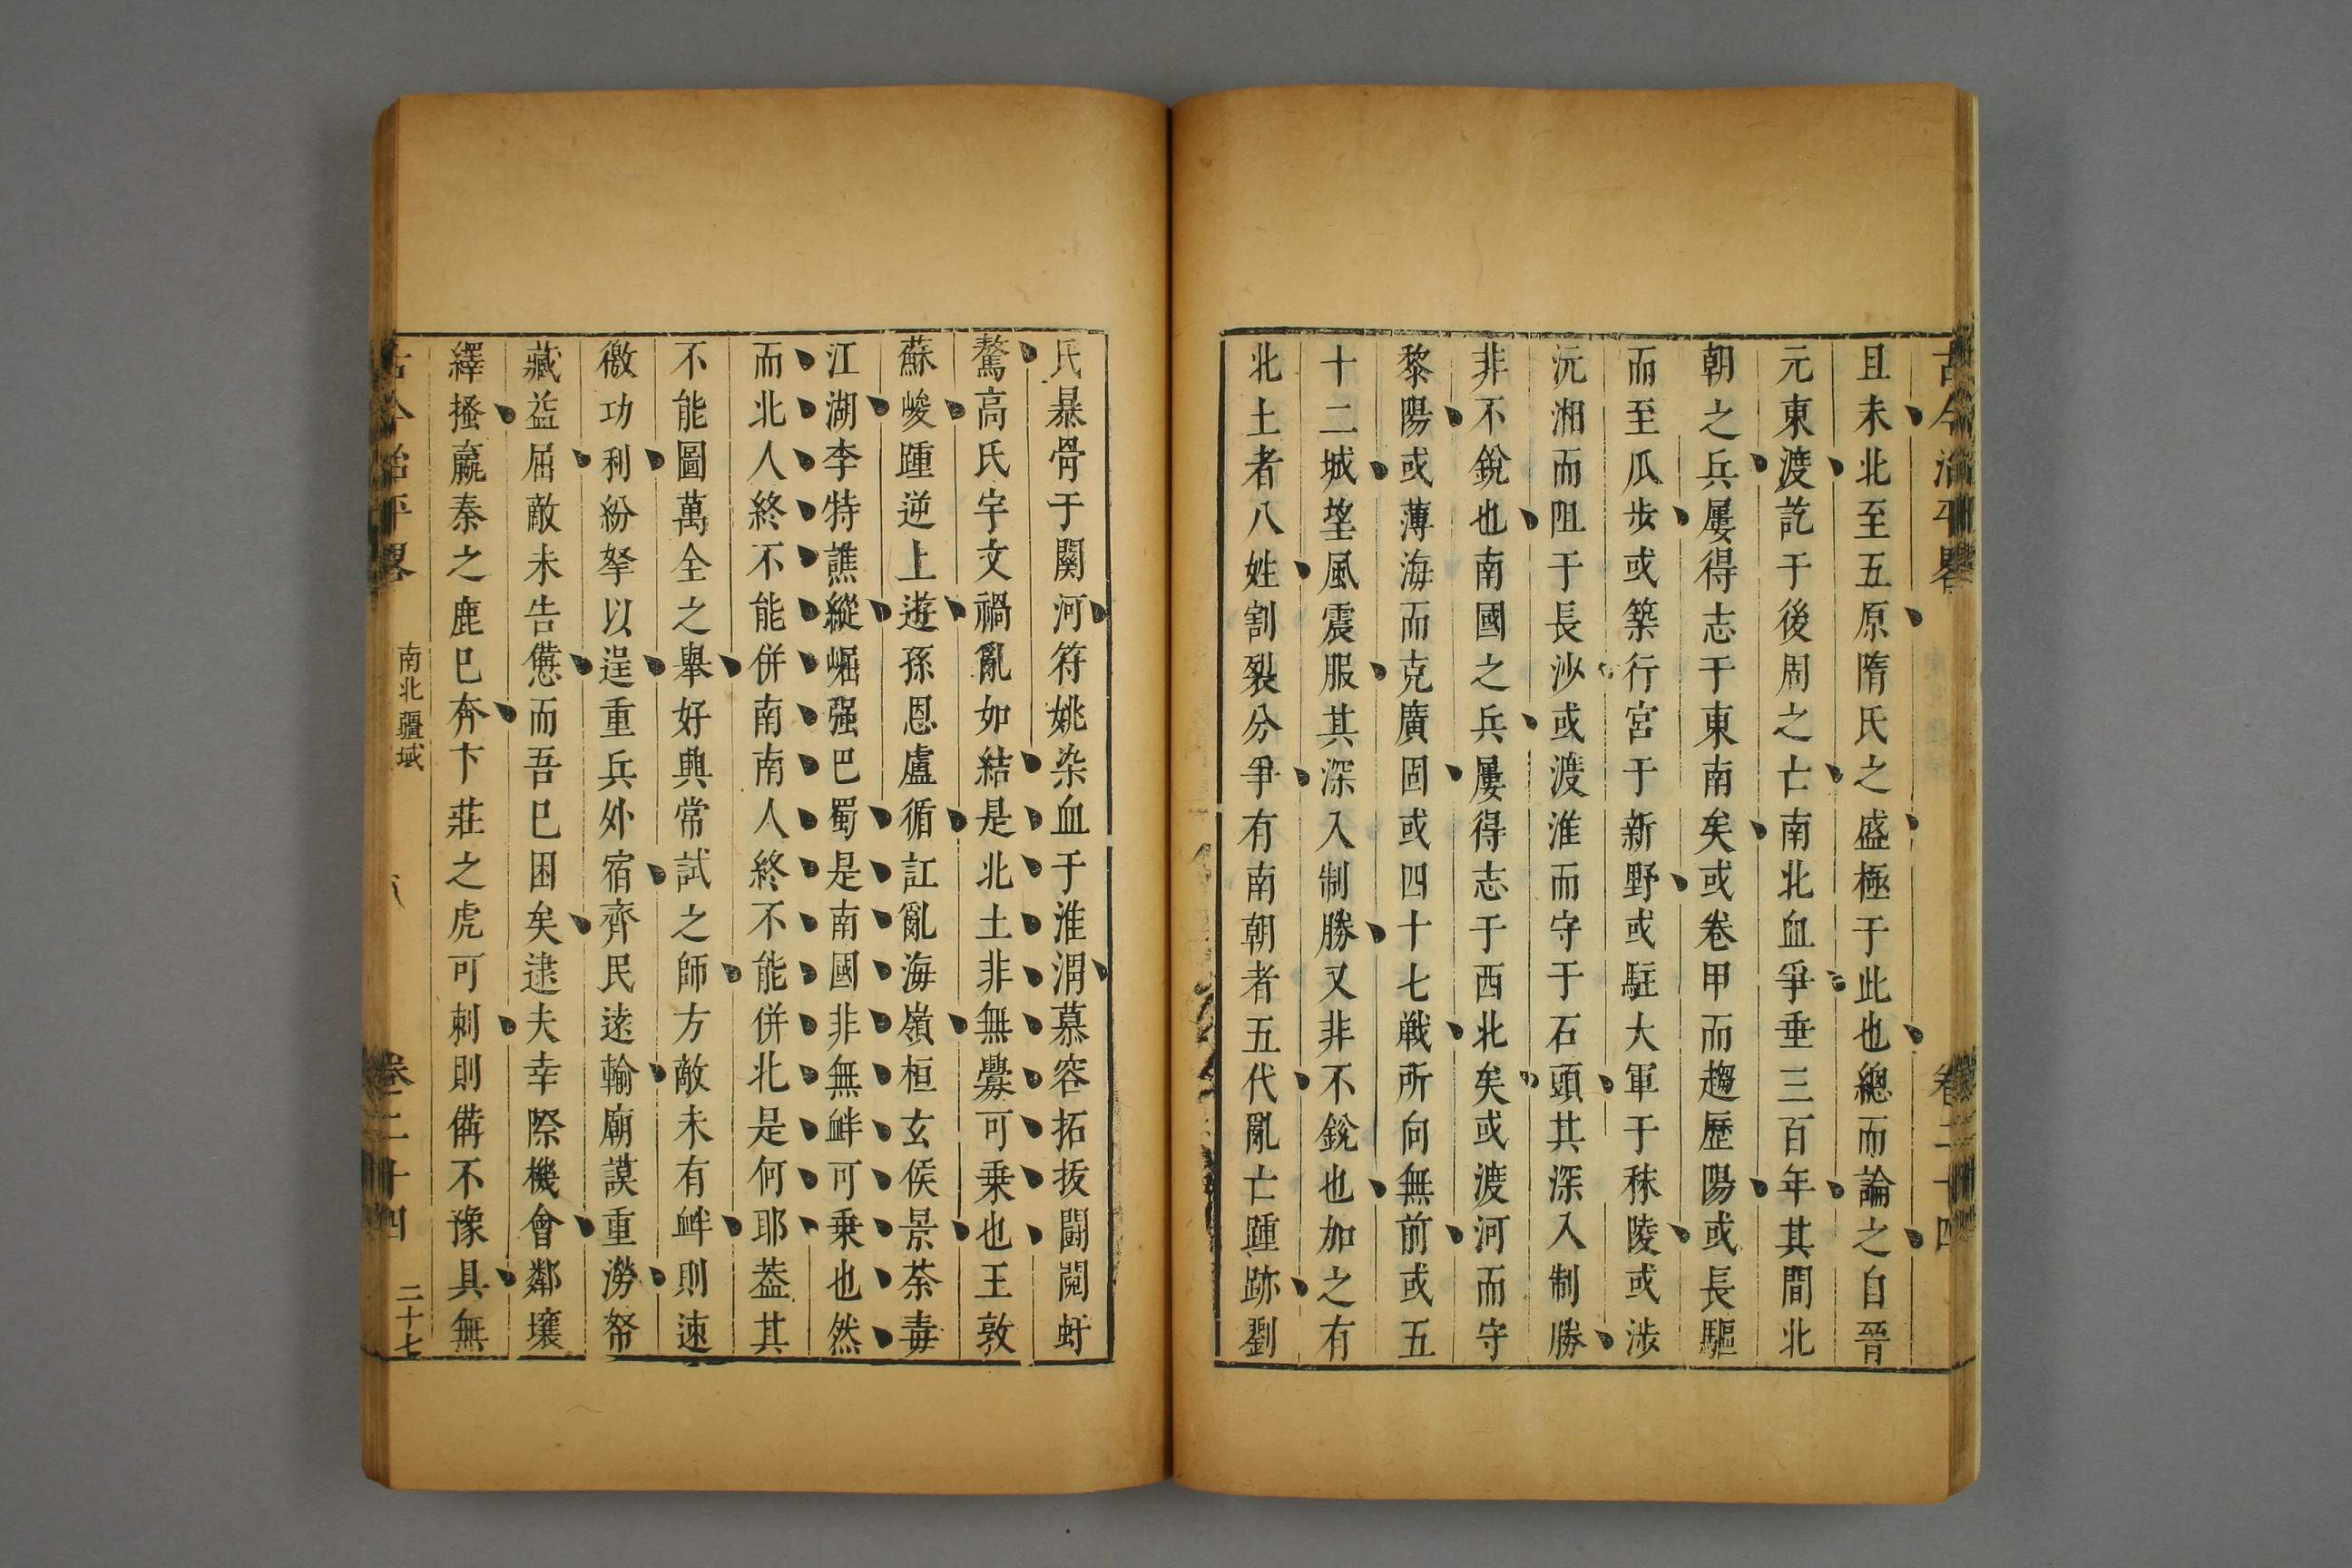 古今治平畧 卷二十四
且末北至五原隋氏之盛極于此也總而論之自晉
元東渡訖于後周之亡南北血爭垂三百年其間北
朝之兵屢得志于東南矣或卷甲而趨歷陽或長驅
而至瓜步或築行宮于新野或駐大軍于秣陵或涉
沅湘而阻于長沙或渡淮而守于石頭其深入制勝
非不銳也南國之兵屢得志于西北矣或渡河而守
黎陽或薄海而克廣固或四十七戰所向無前或五
十二城望風震服其深入制勝又非不銳也加之有
北土者八姓割裂分爭有南朝者五代亂亡踵跡劉
氏暴骨于關河符姚染血于淮渭慕容拓拔鬪鬩蚜
驁高氏宇文禍亂如結是北土非無釁可乗也王敦
蘇峻踵逆上遊孫恩盧循訌亂海嶺桓玄侯景荼毒
江湖李特譙縱崛强巴蜀是南國非無衅可乗也然
而北人終不能併南南人終不能併北是何耶葢其
不能圖萬全之舉好典常試之師方敵未有衅則速
徼功利紛拏以逞重兵外宿齊民遠輸廟謨重澇帑
藏益屈敵未告憊而吾已困矣逮夫幸際機會鄰壤
繹搔嬴秦之鹿已奔卞莊之虎可刺則備不豫具無
古今治平畧 南北疆域 卷二十四 二十七